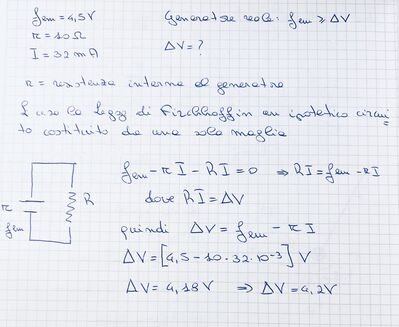 fem = 4,5V
Generatore reale: fem ⩾ ΔV
r = 10Ω
I = 32 mA
ΔV = ?
r = resistenza interna al generatore
Leggi di Kirchhoff in un ipotetico circui
to costituito da una sola maglia
fem - rI - RI = 0 ⇒ RI = fem - rI
dove RI = ΔV
quindi ΔV = fem - rI
ΔV = [4,5 - 10 · 32 · 10⁻³] V
ΔV = 4,18 V ⇒ ΔV = 4,2V
r
fem
R